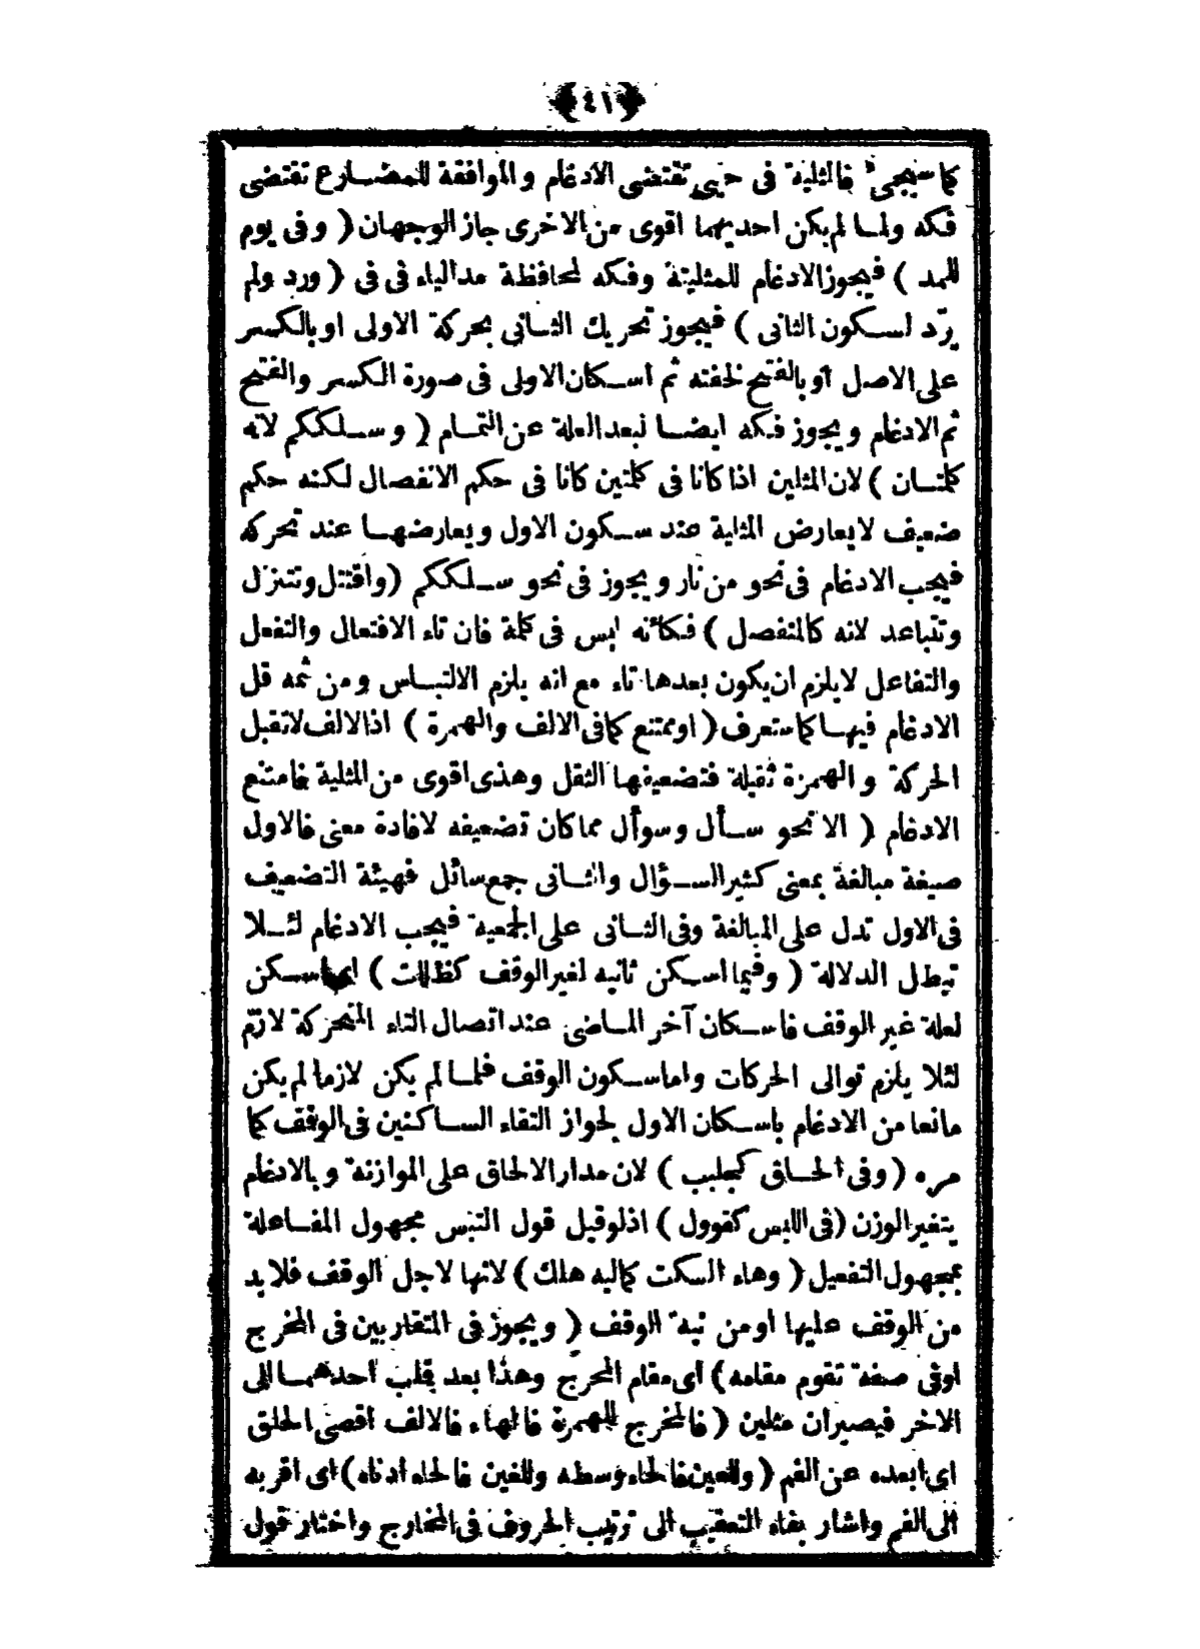 ﴿٤١﴾
كما سيجئ فالمثلية فى حيى تقتضى الادغام والموافقة للمضارع تقتضى
فكه ولما لم يكن احديهما اقوى من الاخرى جاز الوجهان ( وفى يوم
للمد ) فيجوز الادغام للمثلية وفكه لمحافظة مد الياء فى فى ( ورد ولم
يرّد لسكون الثانى ) فيجوز تحريك الثانى بحركة الاولى او بالكسر
على الاصل او بالفتح لخفته ثم اسكان الاولى فى صورة الكسر والفتح
ثم الادغام ويجوز فكه ايضا لبعد العلة عن التمام ( وسلككم لانه
كلمتان ) لان المثلين اذا كانا فى كلمتين كانا فى حكم الانفصال لكنه حكم
ضعيف لا يعارض المثلية عند سكون الاول ويعارضها عند تحركه
فيجب الادغام فى نحو من نار ويجوز فى نحو سلككم (واقتتل وتتنزل
وتتباعد لانه كالمنفصل ) فكأنه ليس فى كلمة فان تاء الافتعال والتفعل
والتفاعل لا يلزم ان يكون بعدها تاء مع انه يلزم الالتباس ومن ثمه قل
الادغام فيها كما ستعرف ( او ممتنع كما فى الالف والهمزة ) اذ الالف لا تقبل
الحركة والهمزة ثقيلة فتضعيفها اثقل وهذى اقوى من المثلية فامتنع
الادغام ( الا نحو سأل وسوأل مما كان تضعيفه لافادة معنى فالاول
صيغة مبالغة بمعنى كثير السؤال والثانى جمع سائل فهيئة التضعيف
فى الاول تدل على المبالغة وفى الثانى على الجمعية فيجب الادغام لئلا
تبطل الدلالة ( وفيما اسكن ثانيه لغير الوقف كظللت ) اسكن
لعلة غير الوقف فاسكان آخر الماضى عند اتصال التاء المتحركة لازم
لئلا يلزم توالى الحركات واما سكون الوقف فلما لم يكن لازما لم يكن
مانعا من الادغام باسكان الاول لجواز التقاء الساكنين فى الوقف كما
مره ( وفى الحاق كجلبب ) لان مدار الالحاق على الموازنة وبالادغام
يتغير الوزن (فى اللبس كقوول ) اذ لو قيل قول التبس مجهول المفاعلة
بمجهول التفعيل ( وهاء السكت كماليه هلك ) لانها لاجل الوقف فلا بد
من الوقف عليها او من نية الوقف ( ويجوز فى المتقاربين فى المخرج
اوفى صفة تقوم مقامه ) اى مقام المخرج وهذا بعد قلب احدهما الى
الاخر فيصيران مثلين ( فالمخرج للهمزة فالهاء فالالف اقصى الحلق
اى ابعده عن الفم ( وللعين فالحاء وسطه وللغين فالخاء ادناه ) اى اقربه
الى الفم واشار بفاء التعقيب الى ترتيب الحروف فى المخارج واختار قول